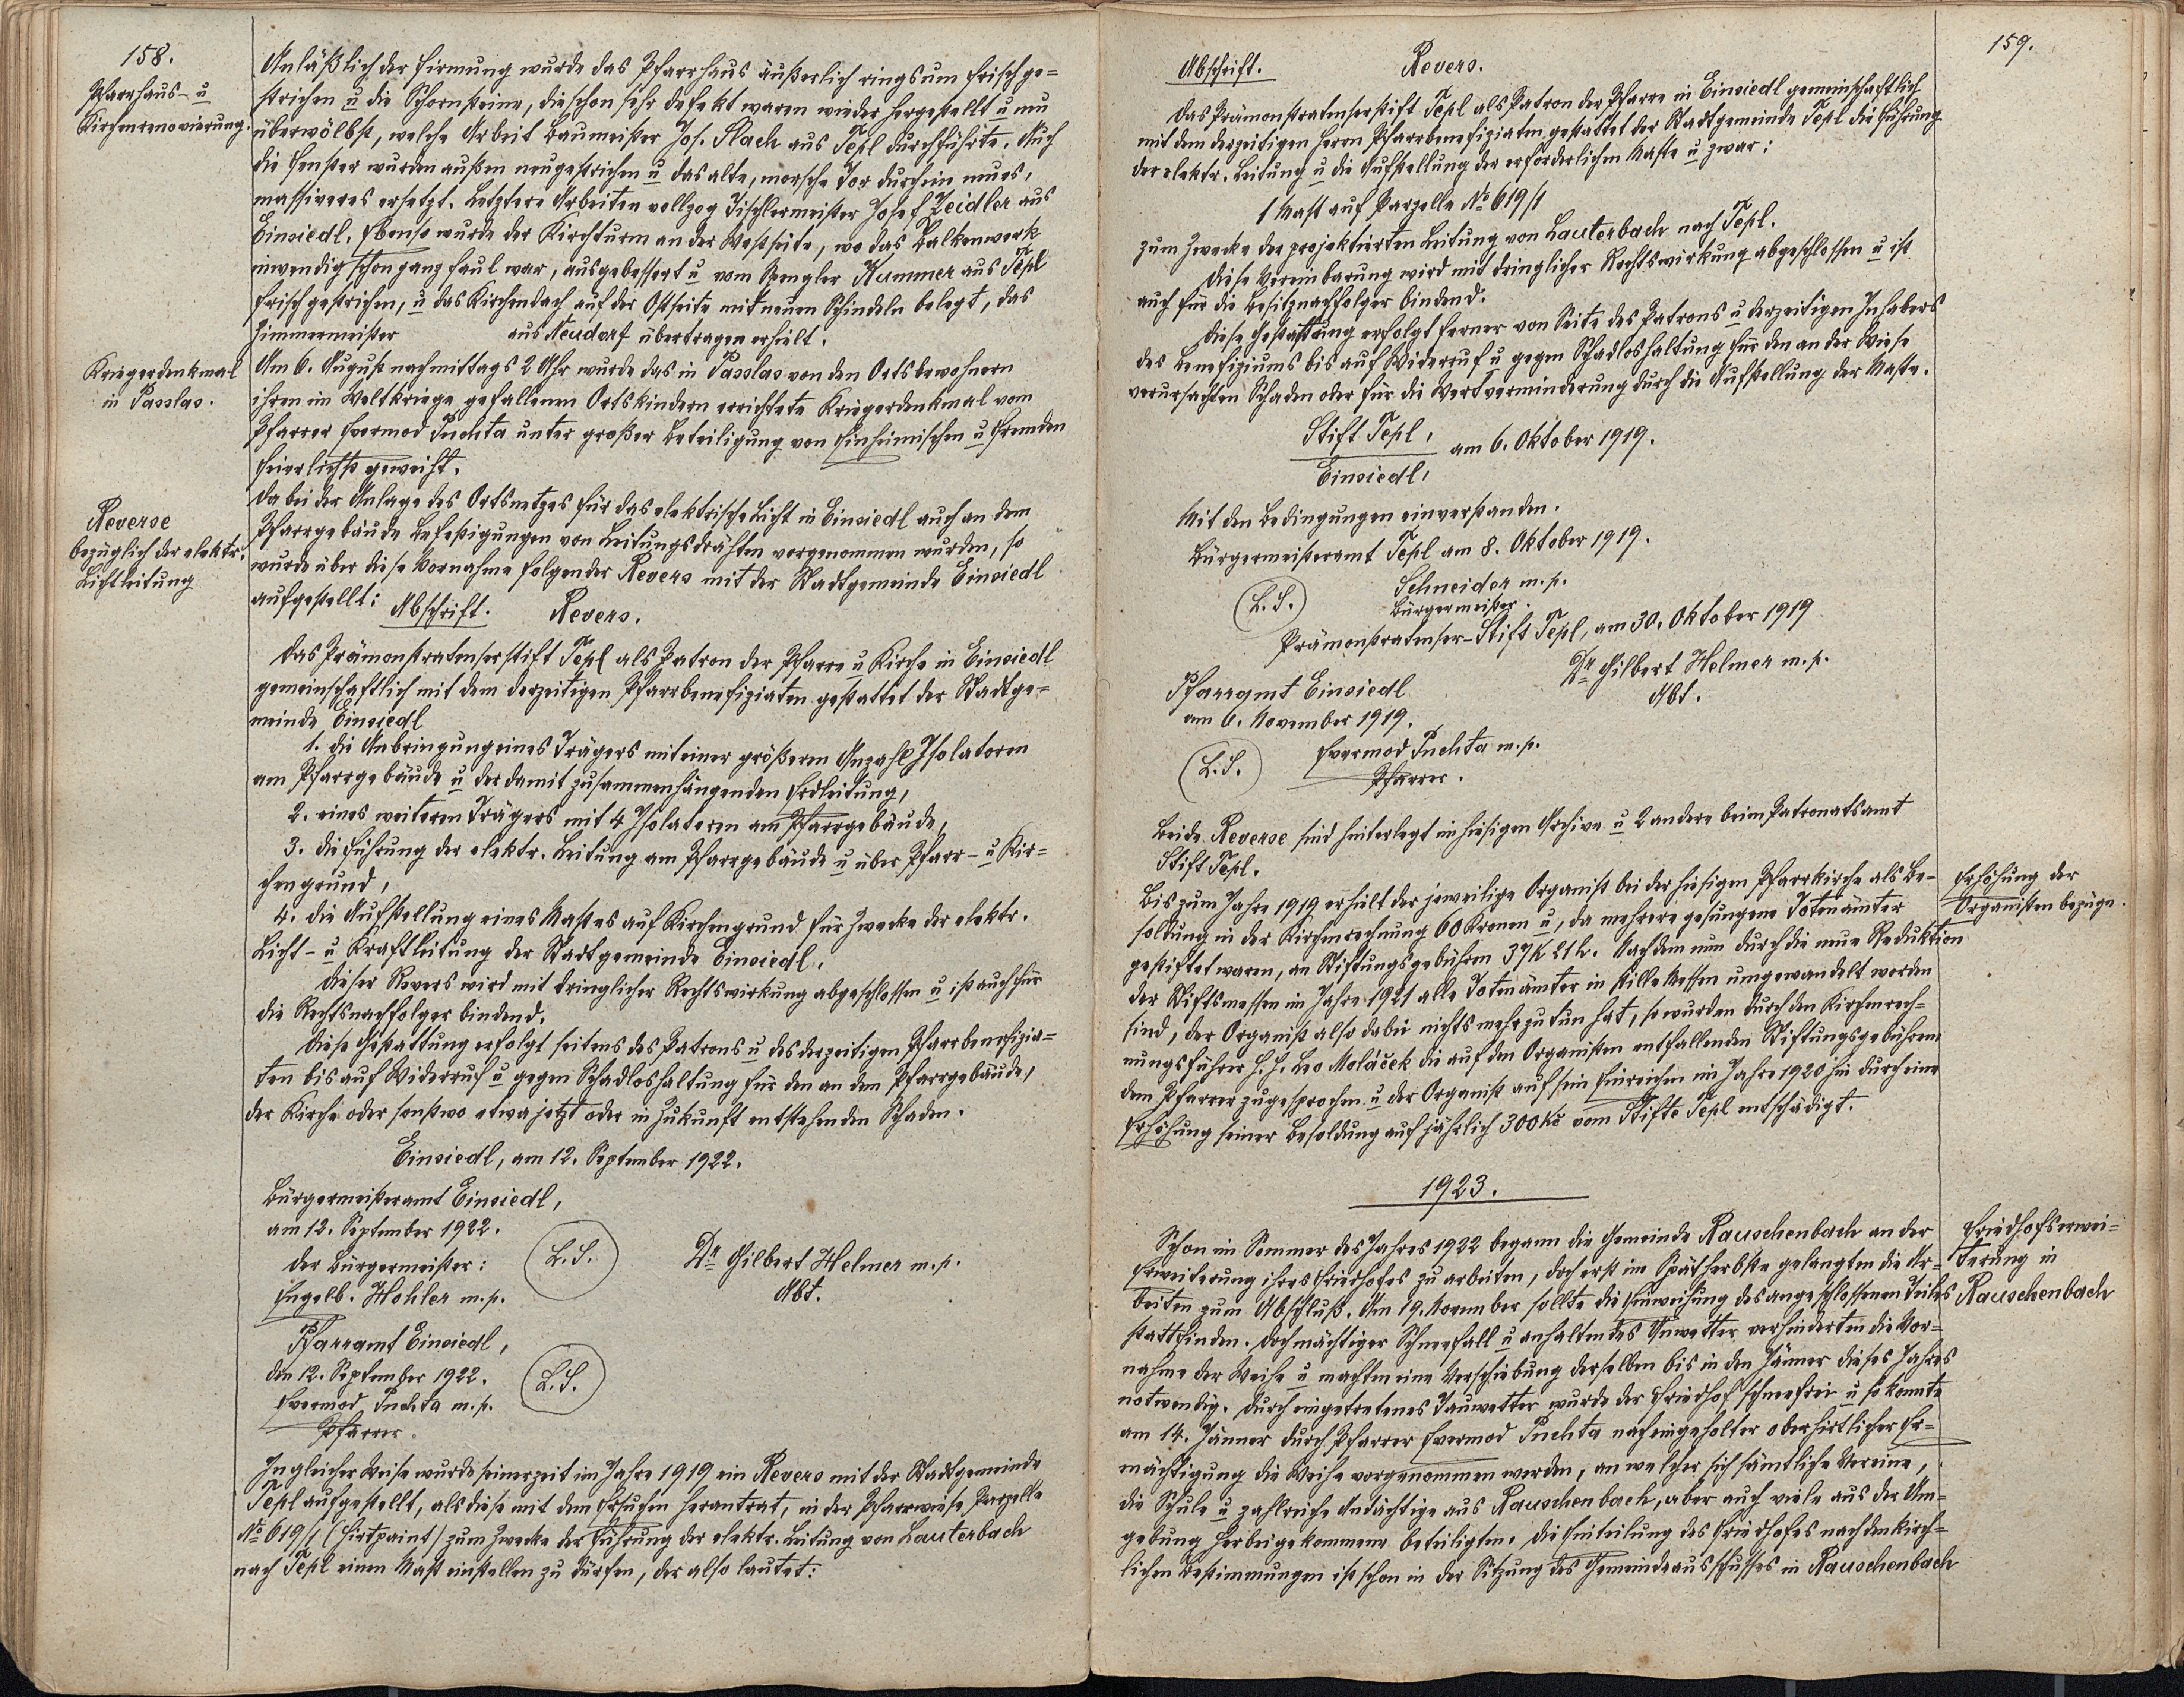 158.
Pfarrhaus- u
Kirchenrenovierung.
Anläßlich der Firmung wurde das Pfarrhaus äußerlich ringsum frisch ge=
strichen u die Schornsteine, die schon sehr defekt waren wieder hergestellt u neu
überwölbt, welche Arbeit Baumeister Jos. Slach aus Tepl durchführte. Auch
die Fenster wurden außen neugestrichen u das alte, morsche Tor durch ein neues,
massiveres ersetzt. Letztere Arbeiten vollzog Tischlermeister Josef Zeidler aus
Einsiedl. Ebenso wurde der Kirchturm an der Westseite, wo das Balkenwerk
inwendig schon ganz faul war, ausgebessert u vom Spengler Kummer aus Tepl
frisch gestrichen, u das Kirchendach auf der Ostseite mit neuen Schindeln belegt, das
Zimmermeister aus Neudorf übertragen erhielt.
Kriegerdenkmal
in Passlas.
Am 6. August nachmittags 2 Uhr wurde das in Passlas von den Ortsbewohnern
ihren im Weltkriege gefallenen Ortskindern errichtete Kriegerdenkmal vom
Pfarrer Evermod Puchta unter großer Beteiligung von Einheimischen u Fremden
feierlichst geweiht.
Reverse
bezüglich der elektr.
Lichtleitung
Da bei der Anlage des Ortsnetzes für das elektrische Licht in Einsiedl auch an dem
Pfarrgebäude Befestigungen von Leitungsdrähten vorgenommen wurden, so
wurde über diese Vornahme folgender Revers mit der Stadtgemeinde Einsiedl
aufgestellt: Abschrift. Revers.
Das Prämonstratenserstift Tepl als Patron der Pfarre u Kirche in Einsiedl
gemeinschaftlich mit dem derzeitigen Pfarrbenefiziaten gestattet der Stadtge=
meinde Einsiedl
1. die Anbringung eines Trägers mit einer größeren Anzahl Isolatoren
am Pfarrgebäude u der damit zusammenhängenden Erdleitung,
2. eines weiteren Trägers mit 4 Isolatoren am Pfarrgebäude,
3. die Führung der elektr. Leitung am Pfarrgebäude u über Pfarr- u Kir=
chengrund,
4. die Aufstellung eines Mastes auf Kirchengrund für Zwecke der elektr.
Licht- u Kraftleitung der Stadtgemeinde Einsiedl.
Dieser Revers wird mit dringlicher Rechtswirkung abgeschlossen u ist auch für
die Rechtsnachfolger bindend.
Diese Gestattung erfolgt seitens des Patrons u des derzeitigen Pfarrbenefizia=
ten bis auf Widerruf u gegen Schadloshaltung für den an dem Pfarrgebäude,
der Kirche oder sonstwo etwa jetzt oder in Zukunft entstehenden Schaden.
Einsiedl, am 12. September 1922.
Bürgermeisteramt Einsiedl,
am 12. September 1922.
Der Bürgermeister: L.S. Dr Gilbert Helmer m.p.
Engelb. Hohler m.p. Abt.
Pfarramt Einsiedl,
den 12. September 1922. L.S.
Evermod Puchta m.p.
Pfarrer.
In gleicher Weise wurde seinerzeit im Jahre 1919 ein Revers mit der Stadtgemeinde
Tepl aufgestellt, als diese mit dem Ersuchen herantrat, in der Pfarrwiese Parzelle
No 619/1 (Hirtpaint) zum Zwecke der Führung der elektr. Leitung von Lauterbach
nach Tepl einen Mast einstellen zu dürfen, der also lautet:
159.
Abschrift. Revers.
Das Prämonstratenserstift Tepl als Patron der Pfarre in Einsiedl gemeinschaftlich
mit dem derzeitigen Herrn Pfarrbenefiziaten gestattet der Stadtgemeinde Tepl die Führung
der elektr. Leitung u die Aufstellung der erforderlichen Maste u zwar:
1 Mast auf Parzelle No 619/1
zum Zwecke der projektierten Leitung von Lauterbach nach Tepl.
Diese Vereinbarung wird mit dringlicher Rechtswirkung abgeschlossen u ist
auch für die Besitznachfolger bindend.
Diese Gestattung erfolgt ferner von Seite des Patrons u derzeitigen Inhabers
des Benefiziums bis auf Widerruf u gegen Schadloshaltung für den an der Wiese
verursachten Schaden oder für die Wertverminderung durch die Aufstellung der Maste.
Stift Tepl,
am 6. Oktober 1919.
Einsiedl,
Mit den Bedingungen einverstanden.
Bürgermeisteramt Tepl am 8. Oktober 1919.
L.S. Schneider m.p.
Bürgermeister.
Prämonstratenser-Stift Tepl, am 30. Oktober 1919
Dr Gilbert Helmer m.p.
Abt.
Pfarramt Einsiedl
am 6. November 1919.
L.S. Evermod Puchta m.p.
Pfarrer.
Beide Reverse sind hinterlegt im hiesigen Archive u 2 andere beim Patronatsamt
Stift Tepl.
Erhöhung der
Organistenbezüge.
Bis zum Jahre 1919 erhielt der jeweilige Organist bei der hiesigen Pfarrkirche als Be=
soldung in der Kirchenrechnung 60 Kronen u, da mehrere gesungene Totenämter
gestiftet waren, an Stiftungsgebühren 37 K 21 h. Nachdem nun durch die neue Reduktion
der Stiftsmessen im Jahre 1921 alle Totenämter in stille Messen umgewandelt worden
sind, der Organist also dabei nichts mehr zu tun hat, so wurden durch den Kirchenrech=
nungsführer H. H. Leo Moláček die auf den Organisten entfallenden Stiftungsgebühren
dem Pfarrer zugesprochen u der Organist auf sein Einreichen im Jahre 1920 hin durch eine
Erhöhung seiner Besoldung auf jährlich 300 Kč vom Stifte Tepl entschädigt.
1923.
Friedhofserwei=
terung in
Rauschenbach
Schon im Sommer des Jahres 1922 begann die Gemeinde Rauschenbach an der
Erweiterung ihres Friedhofes zu arbeiten, doch erst im Spätherbste gelangten die Ar=
beiten zum Abschluß. Am 19. November sollte die Einweihung des angeschlossenen Teiles
stattfinden. Doch mächtiger Schneefall u anhaltendes Unwetter verhinderten die Vor=
nahme der Weihe u machten eine Verschiebung derselben bis in den Jänner dieses Jahres
notwendig. Durch eingetretenes Tauwetter wurde der Friedhof schneefrei u so konnte
am 14. Jänner durch Pfarrer Evermod Puchta nach eingeholter oberhirtlicher Er=
mächtigung die Weihe vorgenommen werden, an welcher sich sämtliche Vereine,
die Schule u zahlreiche Andächtige aus Rauschenbach, aber auch viele aus der Um=
gebung Herbeigekommene beteiligten. Die Einteilung des Friedhofes nach den kirch=
lichen Bestimmungen ist schon in der Sitzung des Gemeindeausschusses in Rauschenbach